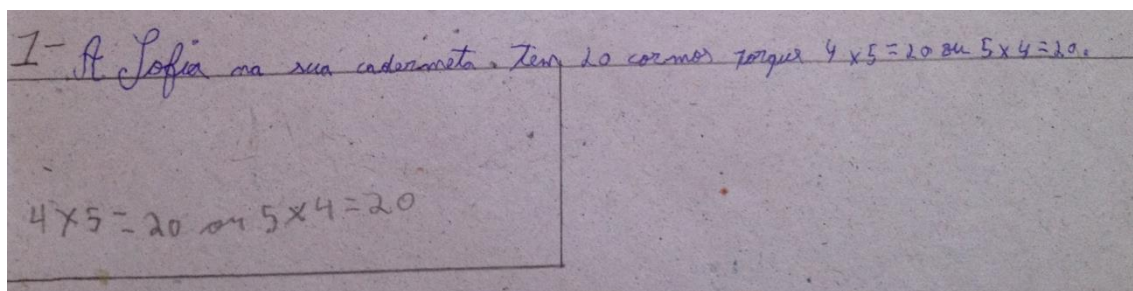 1- A Sofia na sua cadermeta. Tem 20 cormos porque 4 x 5 = 20 ou 5 x 4 = 20.
4 x 5 = 20 ou 5 x 4 = 20